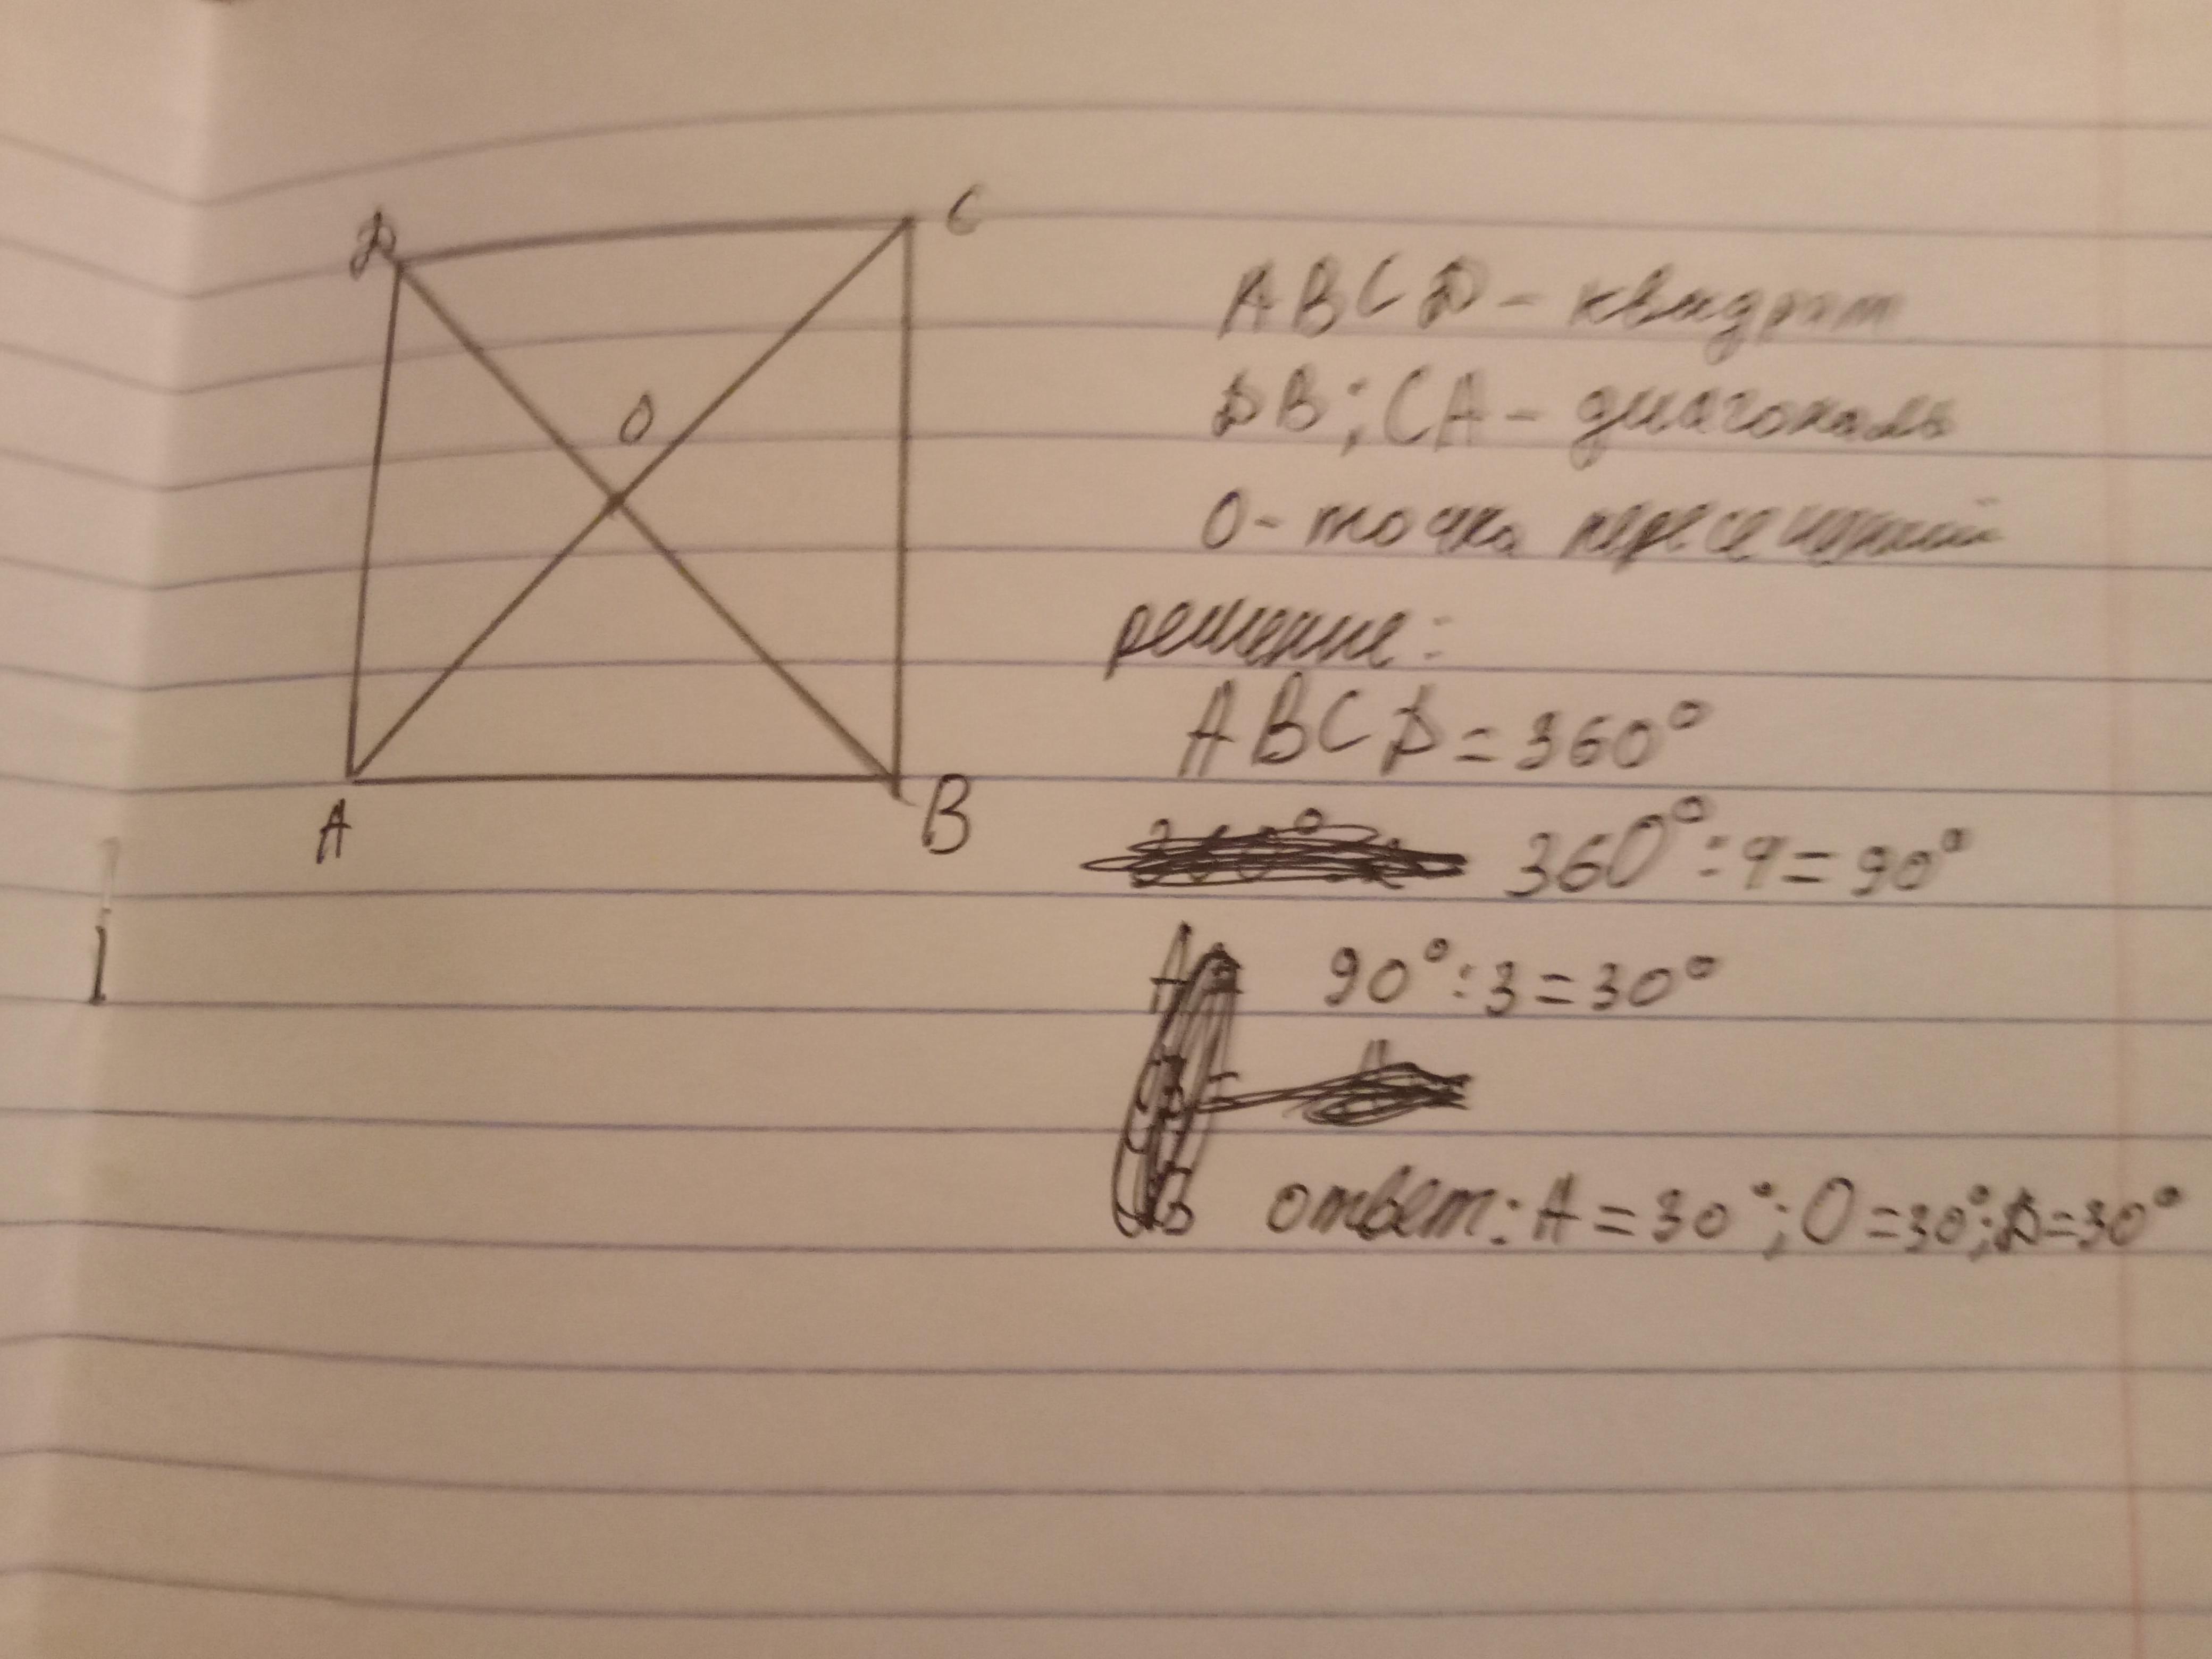 D
C
O
A
B
ABCD - квадрат
DB; CA - диагональ
O - точка пересечений
решение:
ABCD = 360°
360° : 4 = 90°
A 90° : 3 = 30°
B ответ: A = 30°; O = 30°; D = 30°